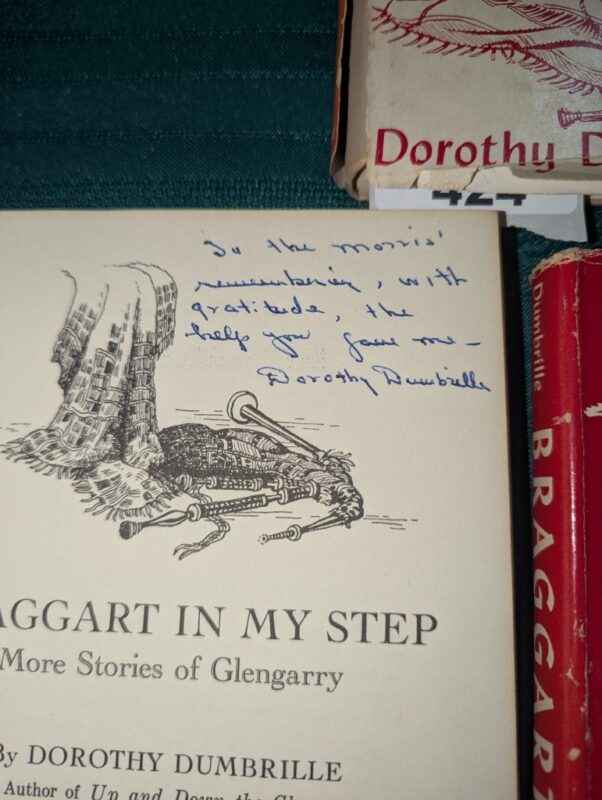 Dorothy D
424
To the Morris'
remembering, with
gratitude, the
help you gave me –
Dorothy Dumbrille
AGGART IN MY STEP
More Stories of Glengarry
By DOROTHY DUMBRILLE
Author of Up and Down the Gl
Dumbrille
BRAGGART